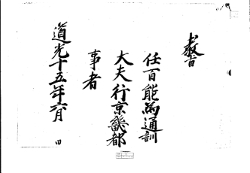 敎旨
任百能爲通訓
大夫行京畿都
事者
道光十五年六月 日